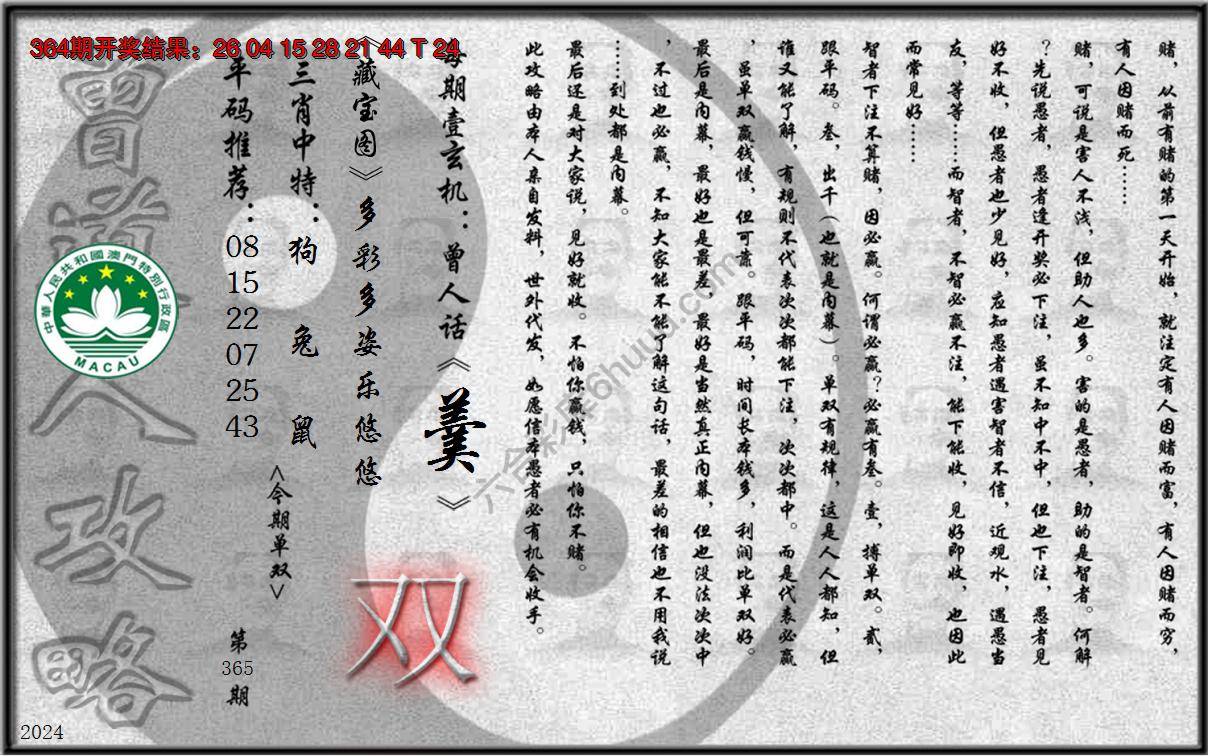 364期开奖结果：26 04 15 28 21 44 T 24
赌，从前有赌的第一天开始，就注定有人因赌而富，有人因赌而穷，
有人因赌而死……
赌，可说是害人不浅，但助人也多。害的是愚者，助的是智者。何解
？先说愚者，愚者逢开奖必下注，虽不知中不中，但也下注，愚者见
好不收，但愚者也少见好，应知愚者遇害智者不信，近观水，遇愚当
友，等等……而智者，不智必赢不注，能下能收，见好即收，也因此
而常见好……
智者下注不算赌，因必赢。何谓必赢？必赢有叁。壹，搏单双。贰，
跟平码。叁，出千（也就是内幕）。单双有规律，这是人人都知，但
谁又能了解，有规则不代表次次都能下注，次次都中。而是代表必赢
，虽单双赢钱慢，但可靠。跟平码，时间长本钱多，利润比单双好。
最后是内幕，最好也是最差，最好是当然真正内幕，但也没法次次中
，不过也必赢，不知大家能不能了解这句话，最差的相信也不用我说
……到处都是内幕。
最后还是对大家说，见好就收。不怕你赢钱，只怕你不赌。
此攻略由本人亲自发料，世外代发，如愿信本愚者必有机会收手。
每期壹玄机：曾人话《羹》
《藏宝图》多彩多姿乐悠悠
三肖中特：狗 兔 鼠
<今期单双>
双
平码推荐：
08
15
22
07
25
43
第
365
期
曾道人攻略
中華人民共和國澳門特別行政區
MACAU
六合彩库6huuu.com
2024